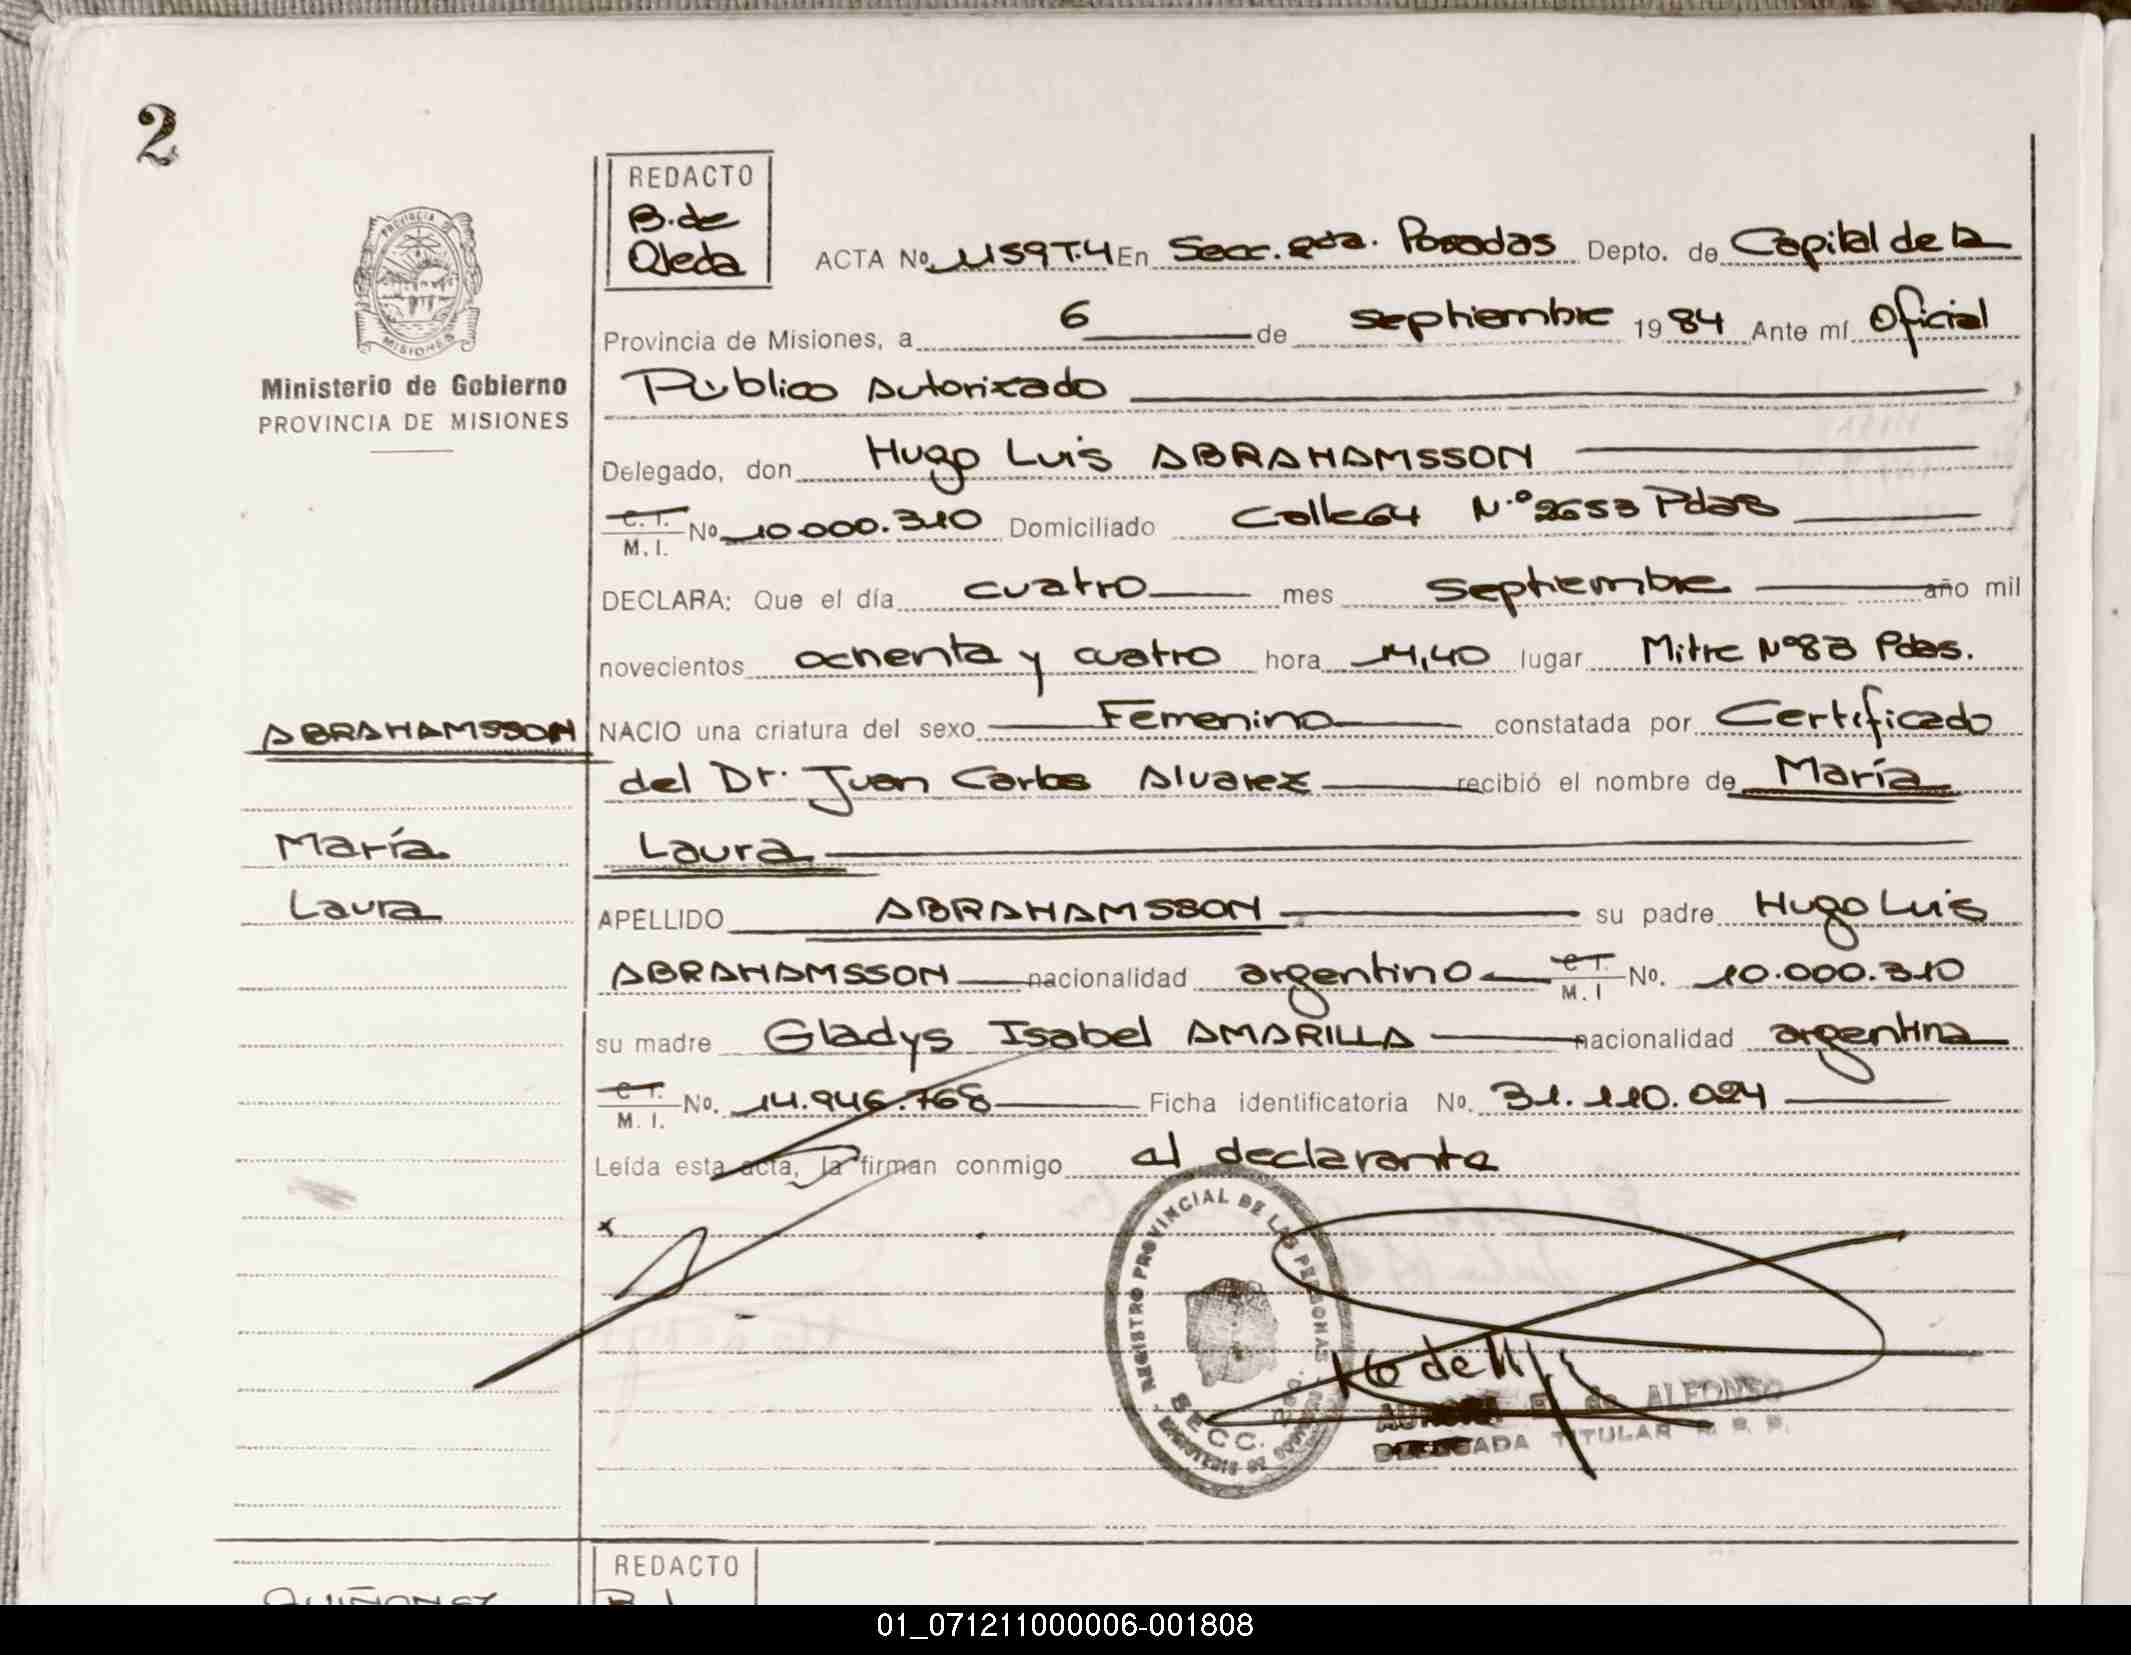 2
REDACTO
B. de
Ojeda
ACTA No 1159T.4 En Secc. 2da. Posadas Depto. de Capital de la
PROVINCIA
MISIONES
Provincia de Misiones, a 6 de septiembre 1984 Ante mí Oficial
Ministerio de Gobierno
PROVINCIA DE MISIONES
Público Autorizado
Delegado, don Hugo Luis ABRAHAMSSON
C. I.
M. I. No 10.000.310 Domiciliado Calle 64 N.º 2653 Pdas
DECLARA: Que el día cuatro mes septiembre año mil
novecientos ochenta y cuatro hora 14,40 lugar Mitre Nº83 Pdas.
ABRAHAMSSON
NACIO una criatura del sexo Femenino constatada por Certificado
del Dr. Juan Carlos Alvarez recibió el nombre de María
María
Laura
Laura
APELLIDO ABRAHAMSSON su padre Hugo Luis
ABRAHAMSSON nacionalidad argentino C I.
M. I No. 10.000.310
su madre Gladys Isabel AMARILLA nacionalidad argentina
C I.
M. I. No. 14.946.768 Ficha identificatoria No. 31.110.024
Leída esta acta, la firman conmigo el declarante
x
REGISTRO PROVINCIAL DE LAS PERSONAS
SECC.
E. de ALFONSO
DELEGADA TITULAR R. P. P.
REDACTO
QUIÑONEZ
01_071211000006-001808